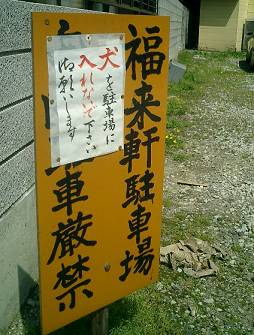 福来軒駐車場
車厳禁
犬を駐車場に
入れないで下さい
お願いします